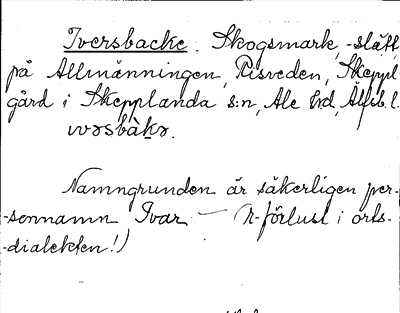 Iversbacke. Skogsmark, -slätt,
på Allmänningen, Risveden, Skeppl-
gård i Skepplanda s:n, Ale hd, Älfsb. l.
ɩvəsbàkə.
Namngrunden är säkerligen per-
-sonnamn Ivar — (r-förlust i orts-
-dialekten!)